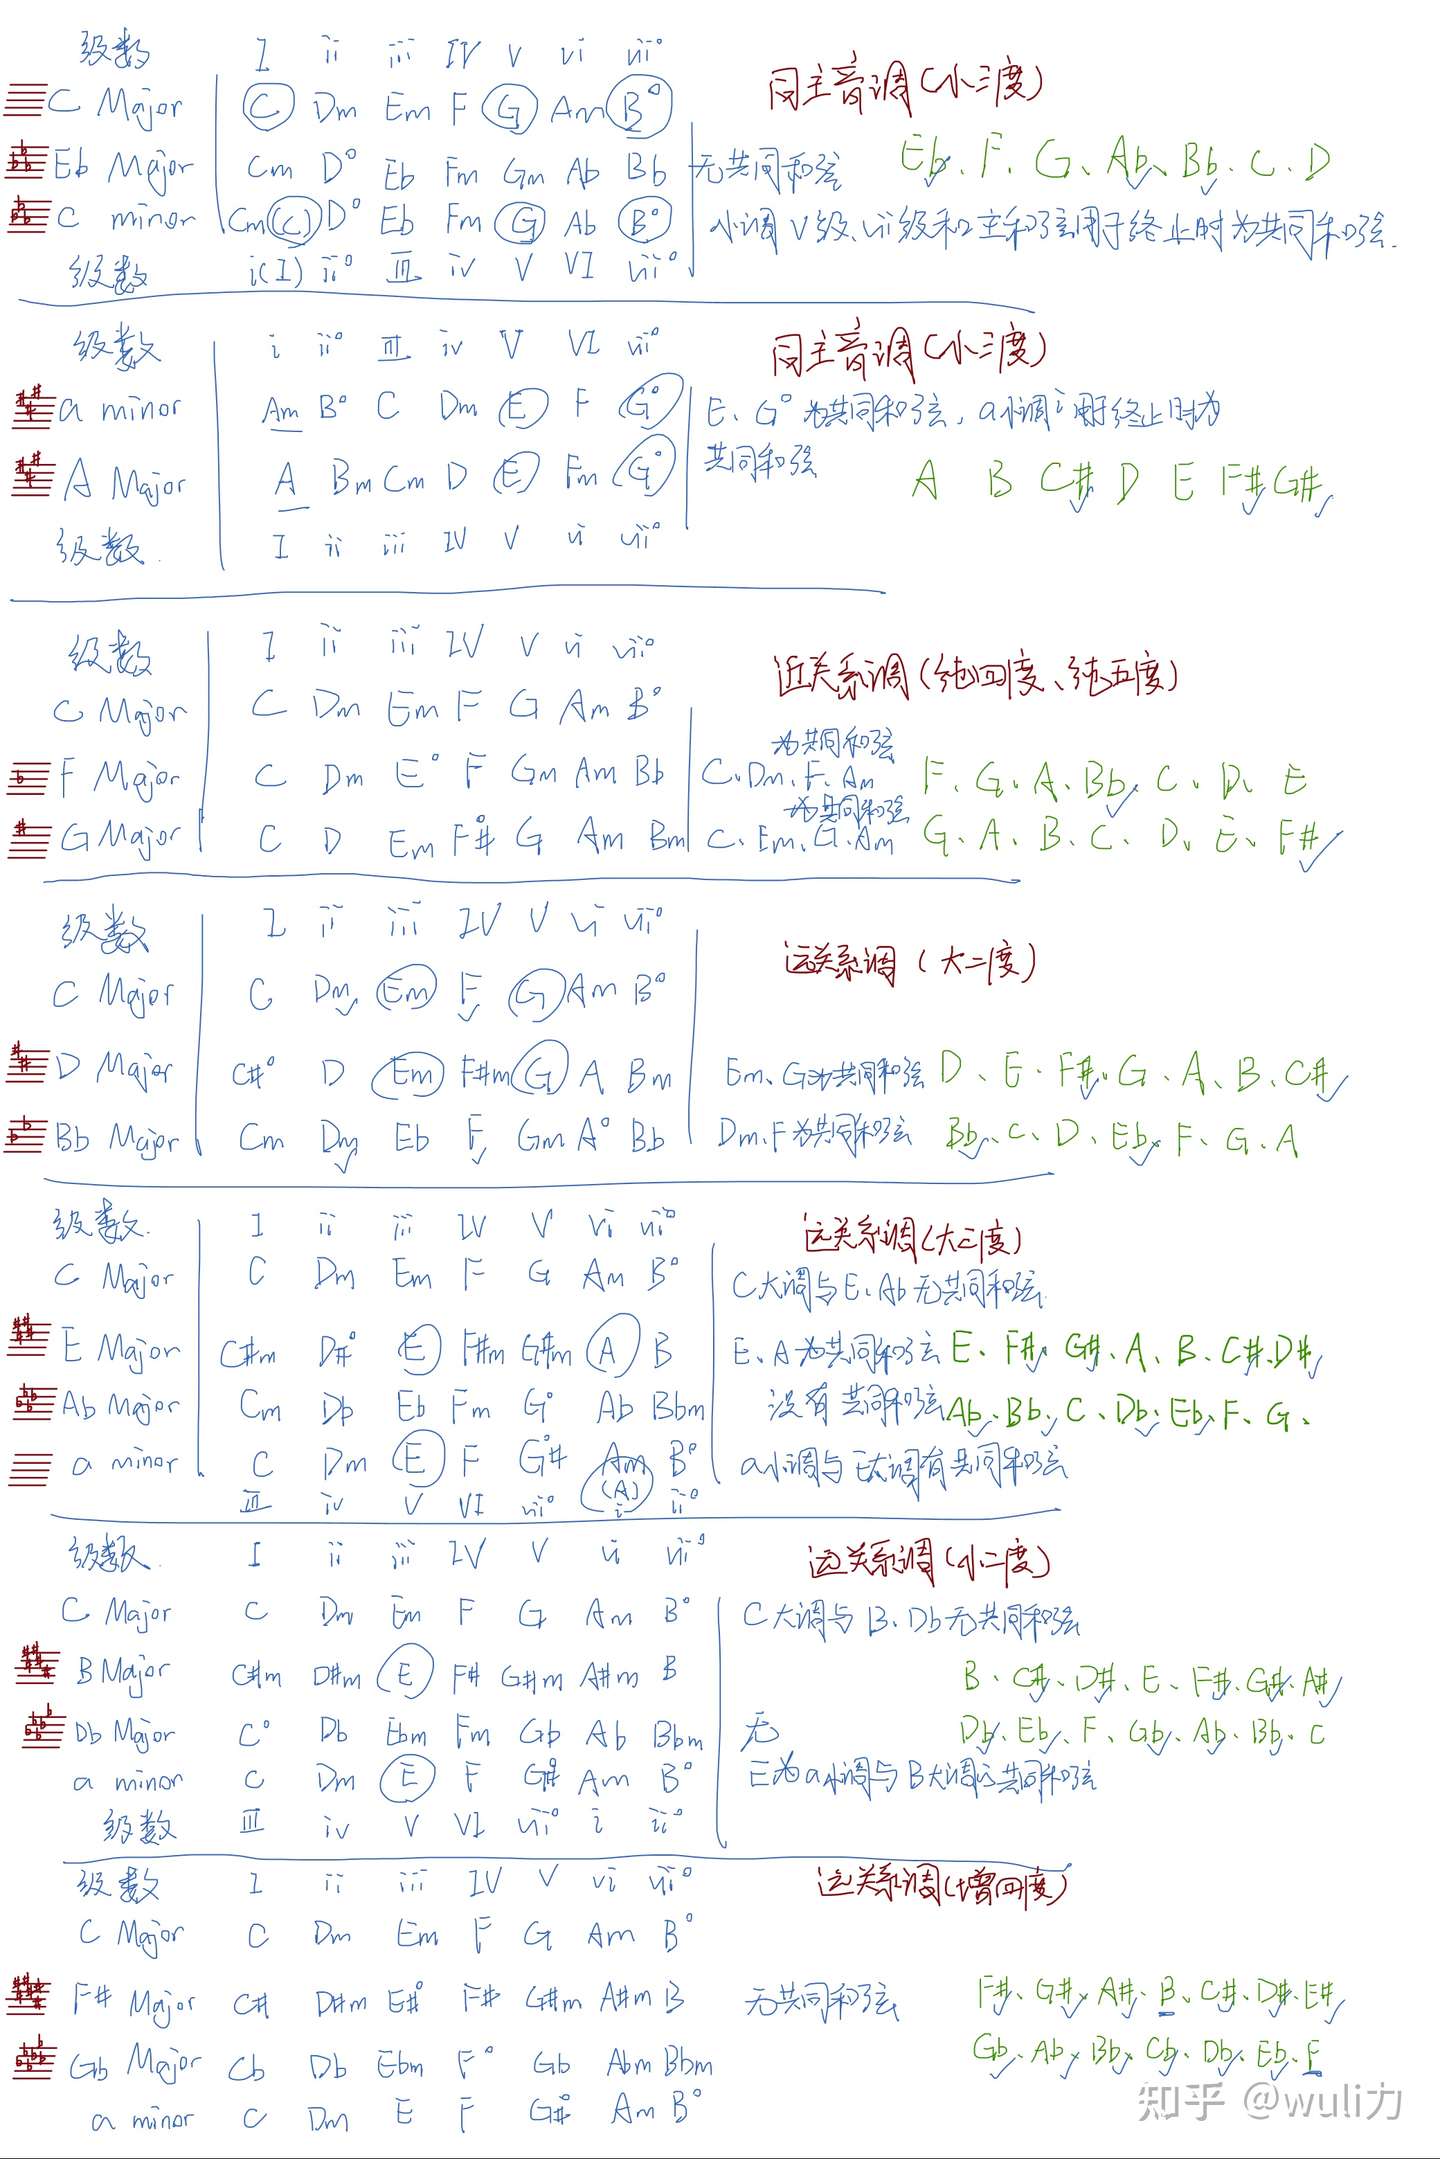 级数 I ii iii IV V vi vii°
C Major C Dm Em F G Am B° 同主音调(小三度)
Eb Major Cm D° Eb Fm Gm Ab Bb 无共同和弦 Eb、F、G、Ab、Bb、C、D
C minor Cm(C) D° Eb Fm G Ab B° 小调V级、vii级和主和弦用于终止时为共同和弦.
级数 i(I) ii° III iv V VI vii°
级数 i ii° III iv V VI vii° 同主音调(小三度)
a minor Am B° C Dm E F G° E、G°为共同和弦,a小调i用于终止时为
共同和弦
A Major A Bm Cm D E Fm G° A B C# D E F# G#
级数. I ii iii IV V vi vii°
级数 I ii iii IV V vi vii° 近关系调(纯四度、纯五度)
C Major C Dm Em F G Am B°
为共同和弦
F Major C Dm E° F Gm Am Bb C、Dm、F、Am F、G、A、Bb、C、D、E
为共同和弦
G Major C D Em F#° G Am Bm C、Em、G、Am G、A、B、C、D、E、F#
级数 I ii iii IV V vi vii° 远关系调(大二度)
C Major C Dm Em F G Am B°
D Major C#° D Em F#m G A Bm Em、G为共同和弦 D、E、F#、G、A、B、C#
Bb Major Cm Dm Eb F Gm A° Bb Dm、F为共同和弦 Bb、C、D、Eb、F、G、A
级数. I ii iii IV V vi vii° 远关系调(大三度)
C Major C Dm Em F G Am B° C大调与E、Ab无共同和弦
E Major C#m D#° E F#m G#m A B E、A为共同和弦 E、F#、G#、A、B、C#、D#
Ab Major Cm Db Eb Fm G° Ab Bbm 没有共同和弦 Ab、Bb、C、Db、Eb、F、G、
a minor C Dm E F G#° Am B° a小调与E大调有共同和弦
(A)
III iv V VI vii° i ii°
级数 I ii iii IV V vi vii° 远关系调(小二度)
C Major C Dm Em F G Am B° C大调与B、Db无共同和弦
B Major C#m D#m E F# G#m A#m B B、C#、D#、E、F#、G#、A#
Db Major C° Db Ebm Fm Gb Ab Bbm 无 Db、Eb、F、Gb、Ab、Bb、C
a minor C Dm E F G#° Am B° E为a小调与B大调的共同和弦
级数 III iv V VI vii° i ii°
级数 I ii iii IV V vi vii° 远关系调(增四度)
C Major C Dm Em F G Am B°
F# Major C# D#m E#° F# G#m A#m B 无共同和弦 F#、G#、A#、B、C#、D#、E#
Gb Major Cb Db Ebm F° Gb Abm Bbm Gb、Ab、Bb、Cb、Db、Eb、F
a minor C Dm E F G#° Am B°
知乎 @wuli力